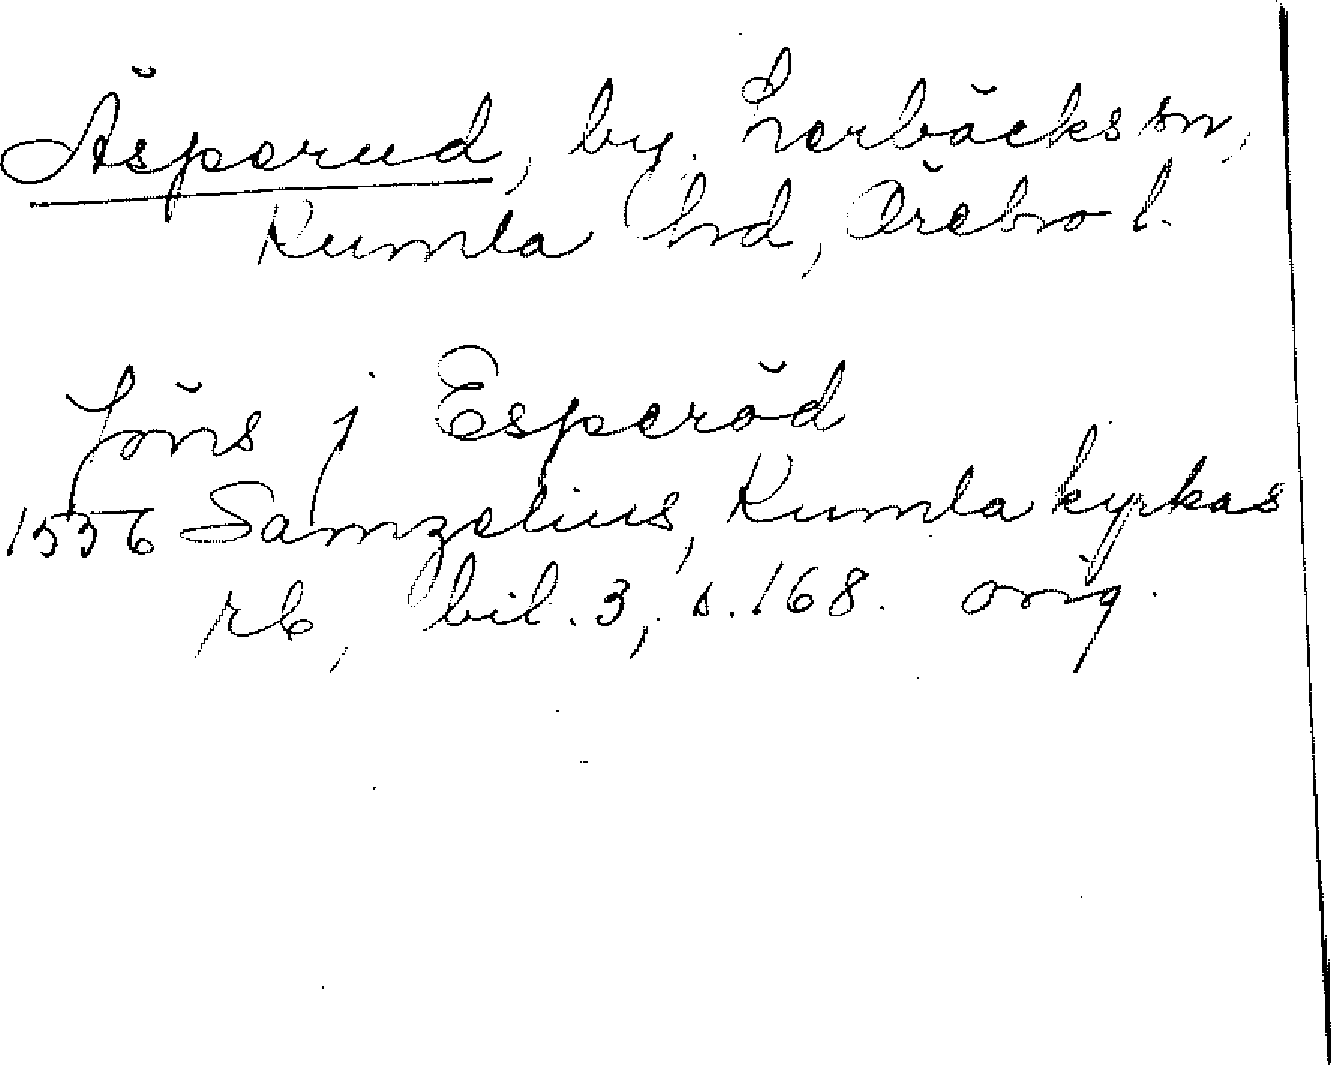 Äsperud, by. Lerbäcks sn,
Kumla hd, Örebro l.
Jöns j Esperöd
1556 Samzelius, Kumla kyrkas
rb, bil. 3, s. 168. orig.